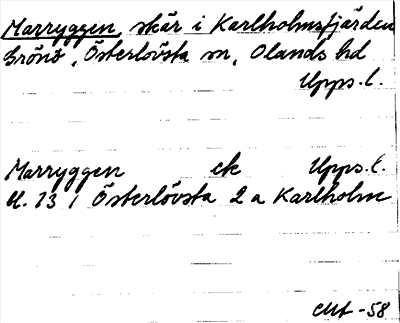 Marryggen, skär i Karlholmsfjärden
Grönö, Österlövsta sn, Olands hd
Upps. l.
Marryggen ek Upps. l.
Bl. 13 i Österlövsta 2 a Karlholm
-58